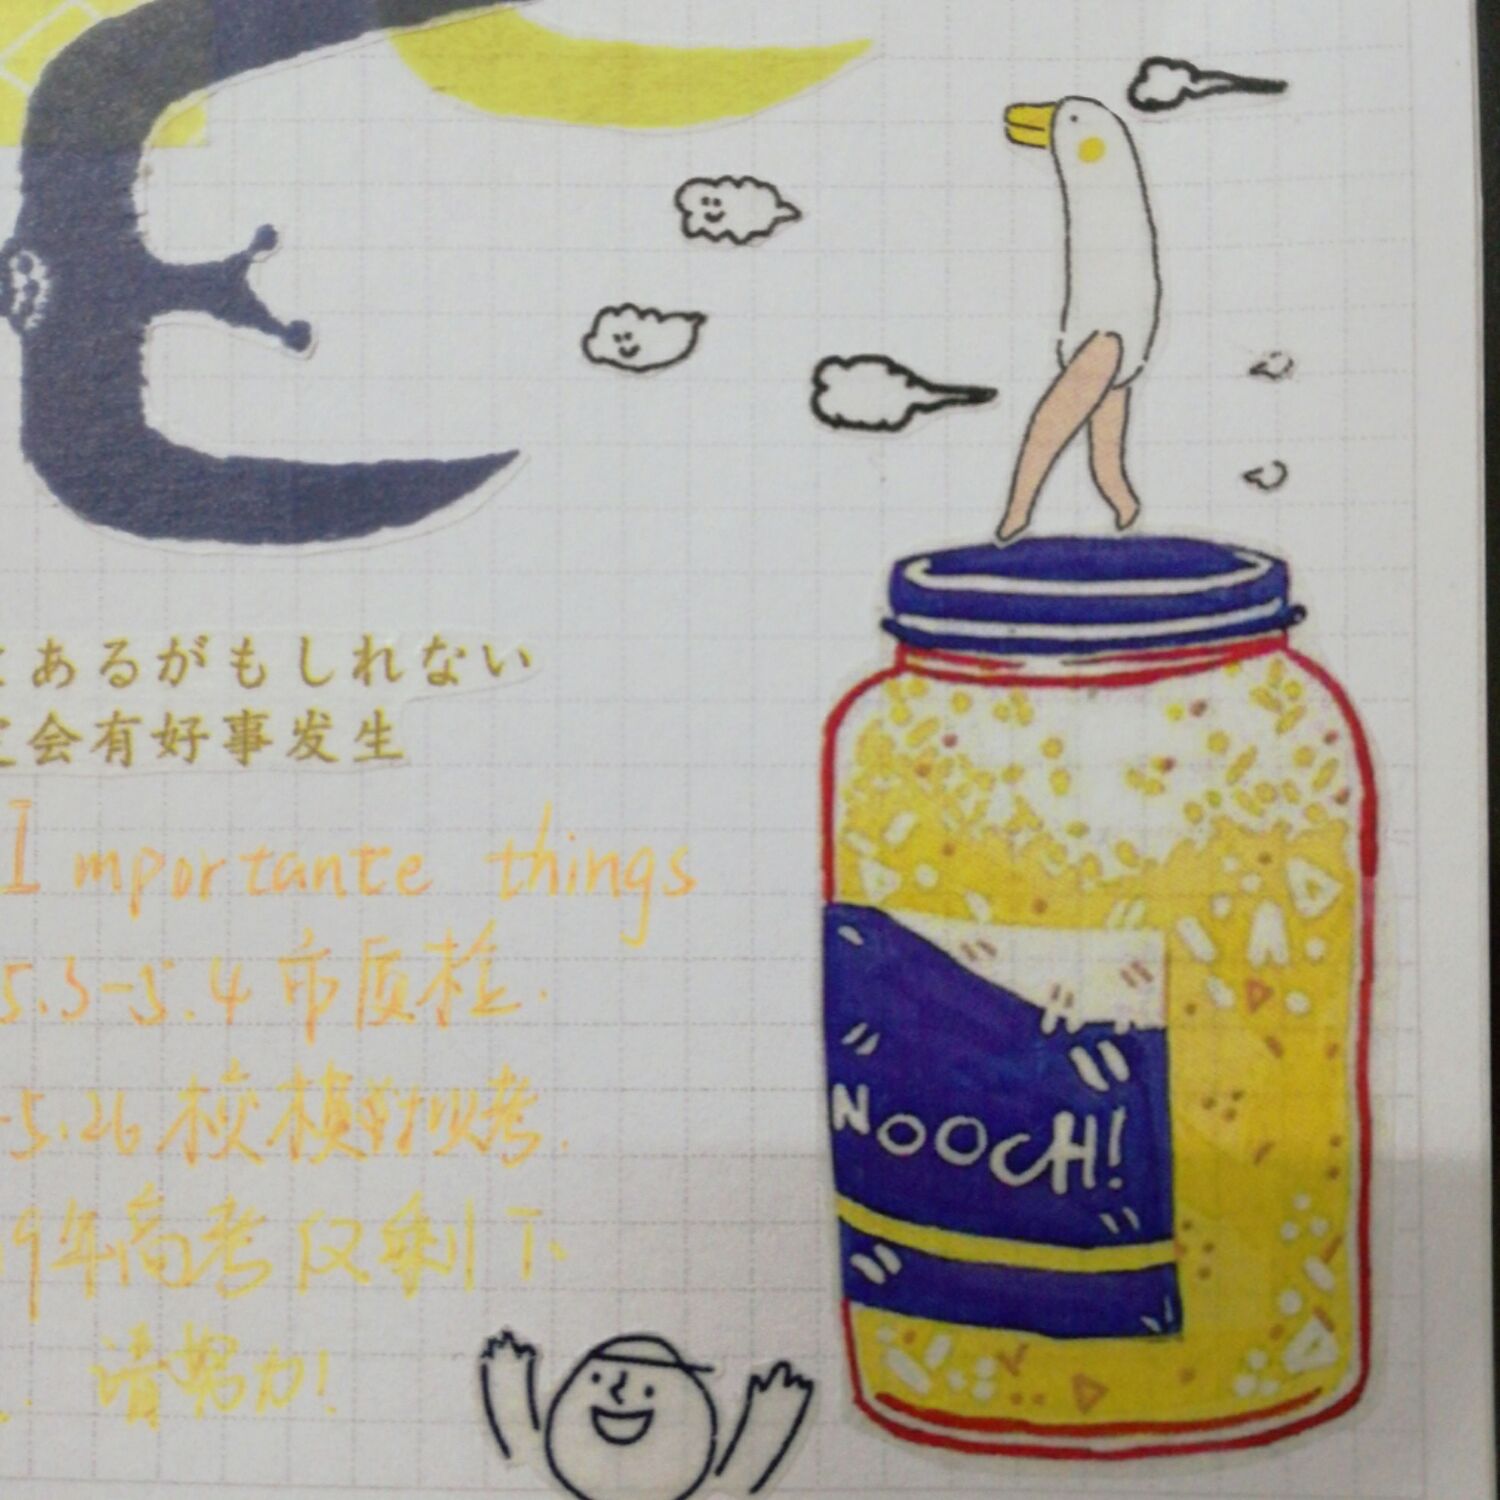 とあるがもしれない
定会有好事发生
Importante things
5.3-5.4 市质检.
-5.26 校模拟考.
19年高考仅剩下
请努力!
NOOCH!